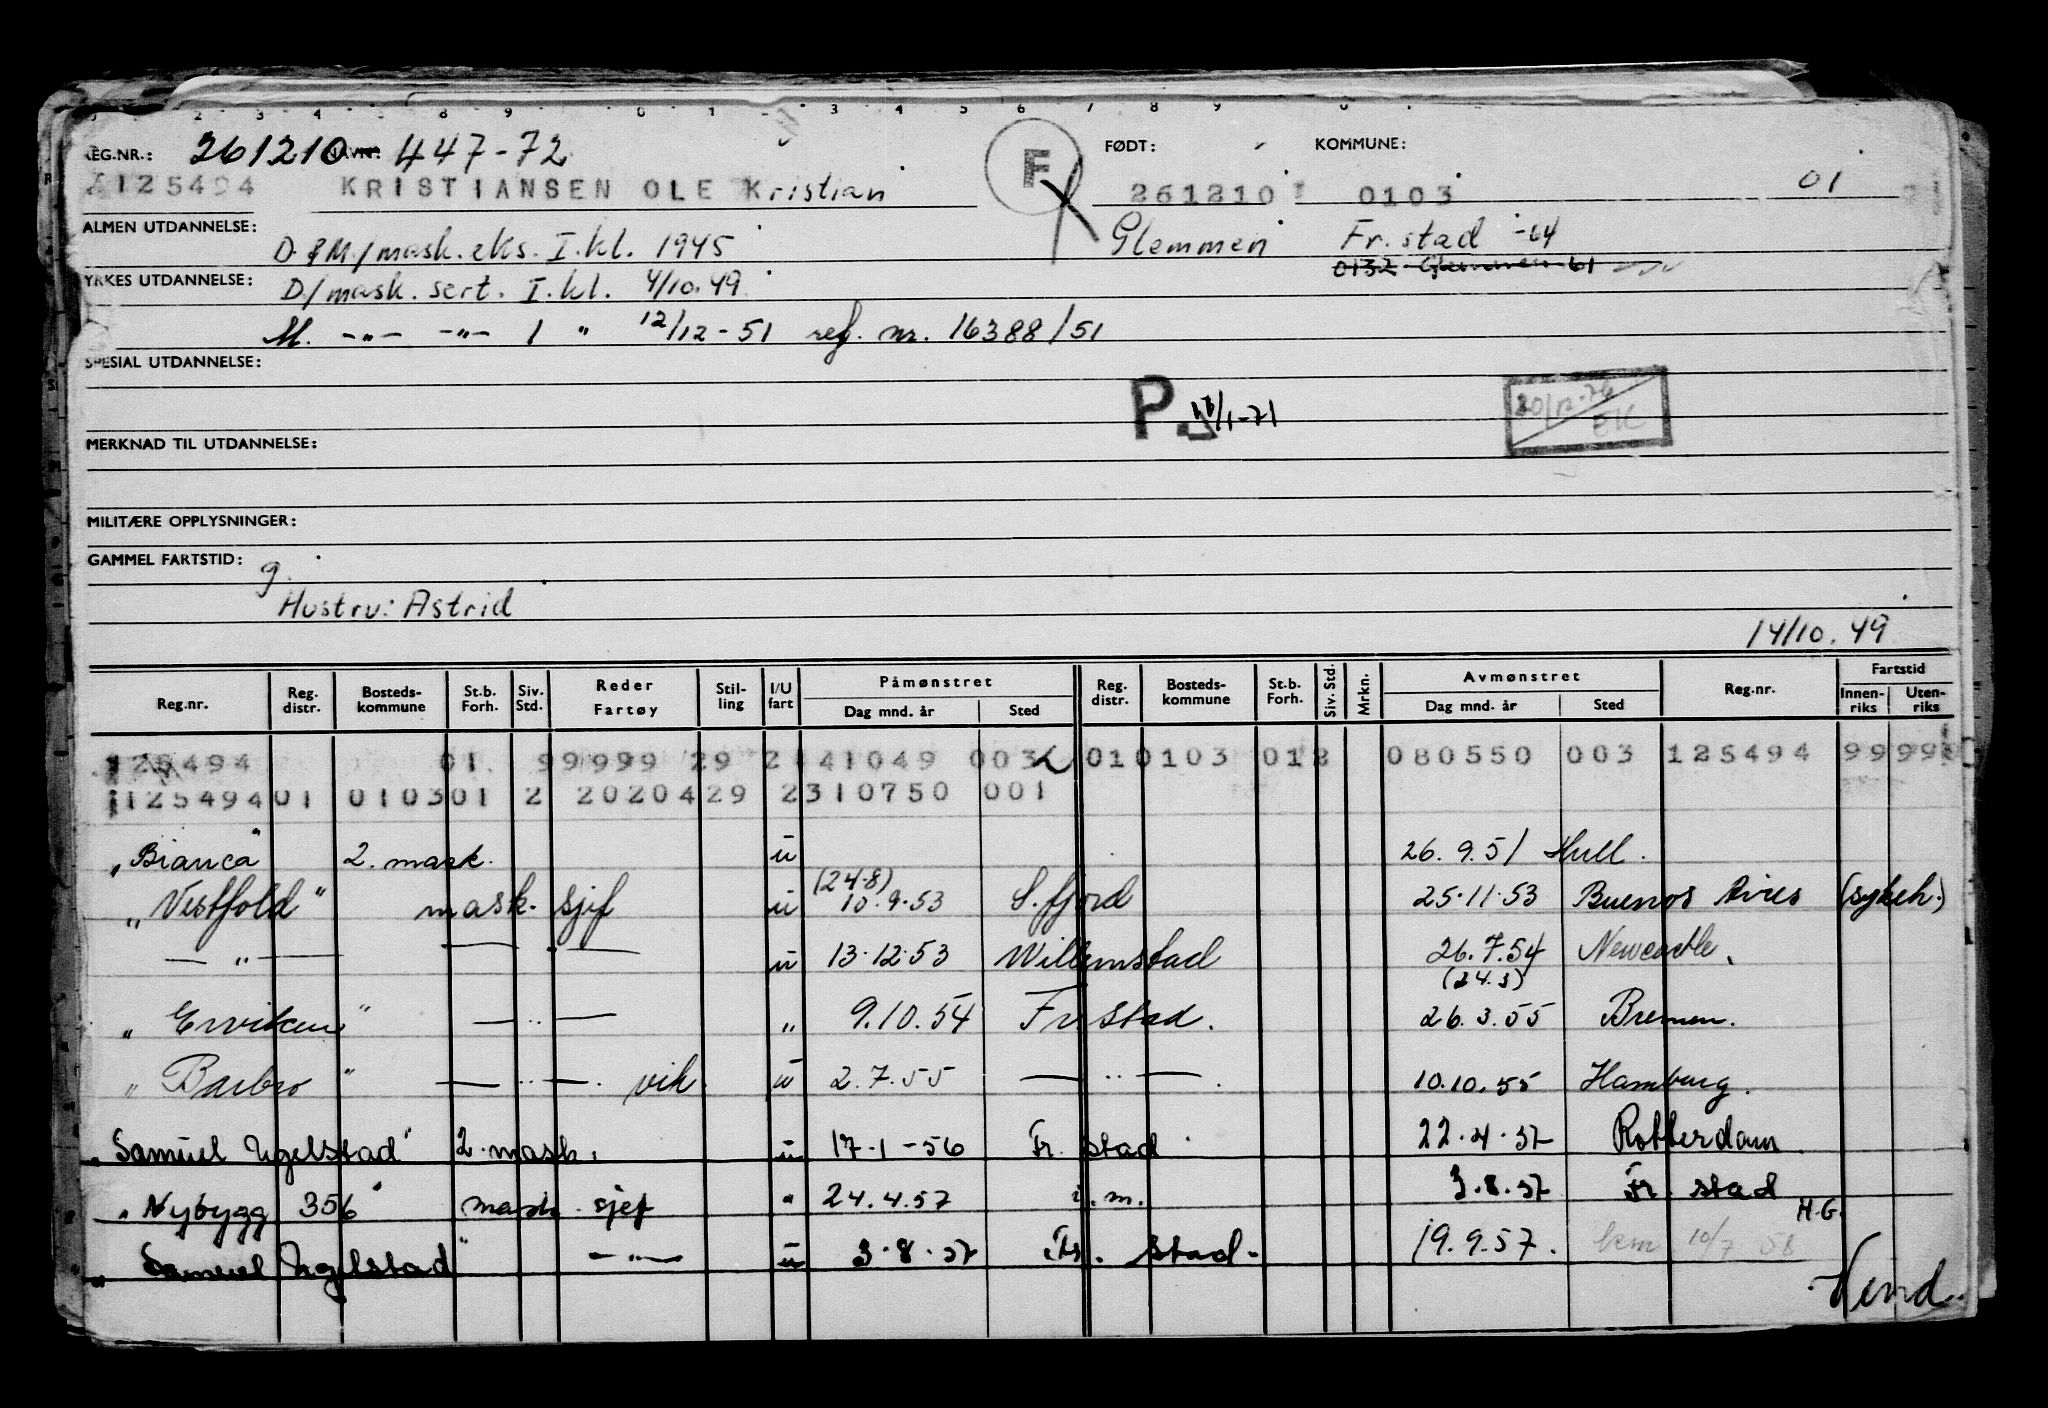 REG.NR.: 261210 NAVN: 447-72 F FØDT: KOMMUNE:
125494 KRISTIANSEN OLE Kristian 261210 0103 01
ALMEN UTDANNELSE: D. & M./mask. eks. I. kl. 1945 Glemmen Fr. stad -64
0132 Glemmen 61
YRKES UTDANNELSE: D/mask. sert. I. kl. 4/10.49
M. -"- -"- 1 " 12/12-51 ref. nr. 16388/51
SPESIAL UTDANNELSE:
P /1-71 20/12-76
MERKNAD TIL UTDANNELSE:
MILITÆRE OPPLYSNINGER:
GAMMEL FARTSTID: g.
Hustru: Astrid
14/10.49
Reg.nr. Reg. distr. Bosteds- kommune St.b. Forh. Siv. Std. Reder Fartøy Stil- ling I/U fart Påmønstret Dag mnd. år Sted Reg. distr. Bosteds- kommune St.b. Forh. Siv. Std. Mrkn. Avmønstret Dag mnd. år Sted Reg.nr. Fartstid Innen- riks Uten- riks
125494 01 99999 29 2 141049 003 01 0103 01 2 080550 003 125494 99 99
125494 01 0103 01 2 20204 29 2 310750 001
"Bianca" 2. mask. u 26.9.51 Hull.
"Vestfold" mask. sjef u (24.8) 10.9.53 S.fjord 25.11.53 Buenos Aires (sykeh.)
— " — — " — u 13.12.53 Willemstad 26.7.54 Newcastle.
"Erviken" — " — " 9.10.54 Fr. stad. (24.3) 26.3.55 Bremen.
"Barbro" — " —. vik. u 2.7.55 — " —. 10.10.55 Hamburg.
"Samuel Ugelstad" 2. mask. u 17-1-56 Fr. stad 22.4.57 Rotterdam
"Nybygg 356" mask. sjef " 24.4.57 i.m. 3.8.57 Fr. stad
H.G.
"Samuel Ugelstad" — " — u 3.8.57 Fr. stad. 19.9.57. hem 10/7 58
Vend.